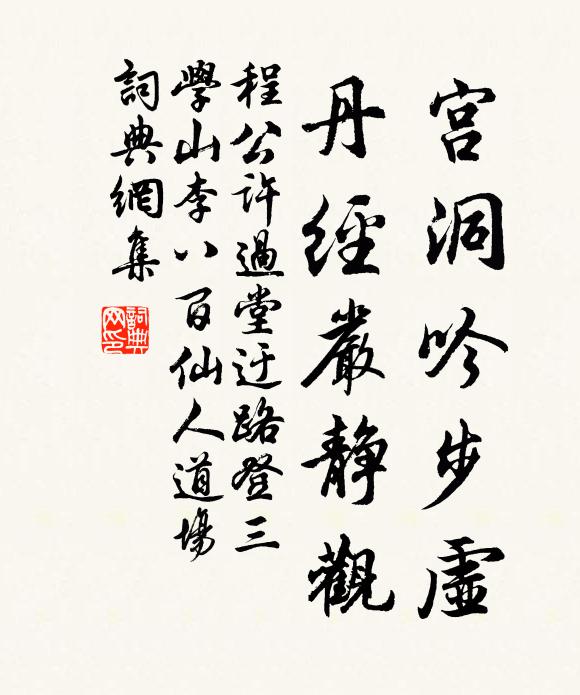 宮洞吟步虛
丹經嚴靜觀
程公許過堂迂路登三
學山李八百仙人道場
詞典網集
詞典网印